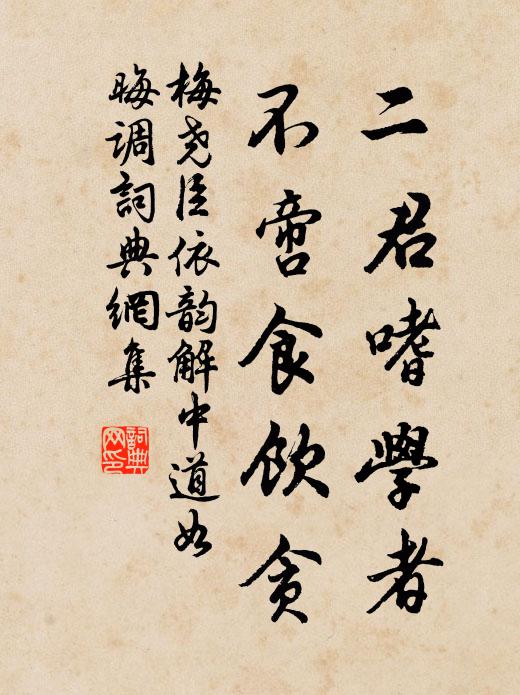 二君嗜學者
不啻食飲貪
梅堯臣依韵解中道如
晦調詞典網集
詞典网印